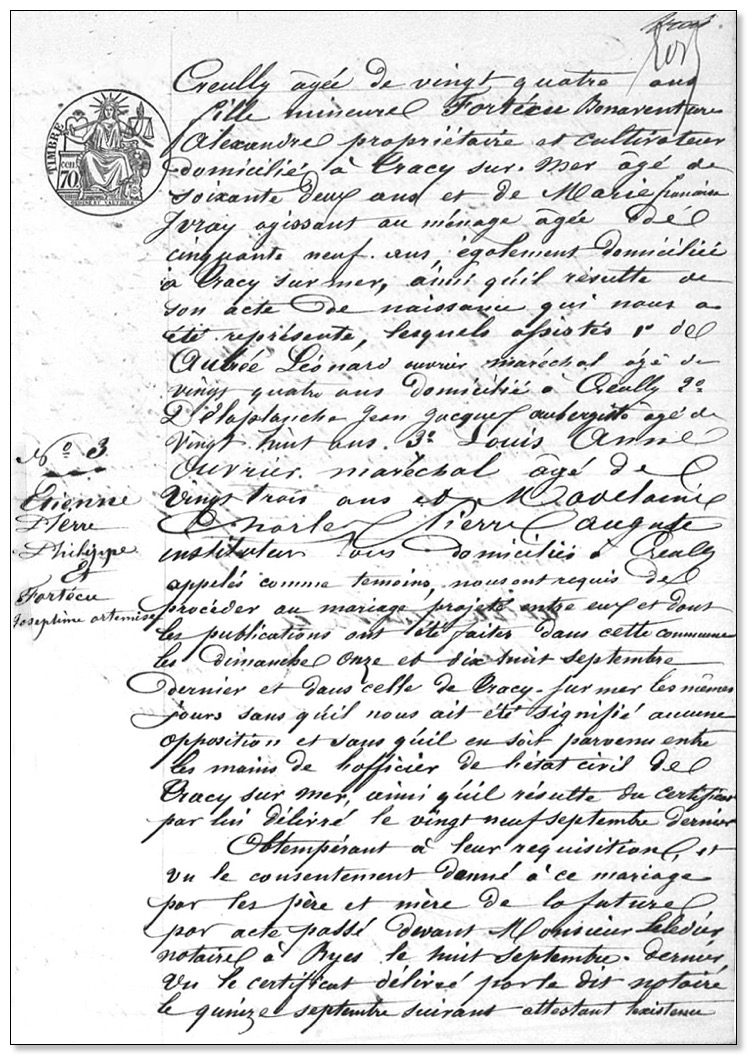 trois
TIMBRE
cen
70
Creully âgée de vingt quatre ans
fille mineure Fortecu Bonaventure
Alexandre propriétaire et cultivateur
domicilié à Tracy sur-Mer âgé de
soixante deux ans et de Marie françoise
agissant au ménage agée de
cinquante neuf ans, également domiciliée
à Tracy sur mer, ainsi qu'il résulte de
son acte de naissance qui nous a
été représente, lesquels assistés 1° de
Léonard ouvrier maréchal agé de
vingt quatre ans domicilié à Creully 2°
Delaplanche Jean Jacques aubergiste agé de
vingt huit ans. 3° Louis Anne
ouvrier maréchal âgé de
vingt trois ans et
Charles Pierre auguste
instituteur tous domiciliés à Creully
appelés comme temoins, nous ont requis de
procéder au mariage projeté entre eux et dont
les publications ont été faites dans cette commune
les dimanche onze et dix huit septembre
dernier et dans celle de Tracy-sur mer les mêmes
jours sans qu'il nous ait été signifié aucune
opposition et sans qu'il en soit parvenu entre
les mains de l'officier de l'état civil de
Tracy sur mer, ainsi qu'il résulte du certificat
par lui délivré le vingt neuf septembre dernier
Obtempérant à leur requisition, et
vu le consentement donné à ce mariage
par les père et mère de la future
par acte passé devant Monsieur
notaire à Ryes le huit septembre dernier
Vu le certificat délivré par le dit notaire
le quinze septembre suivant attestant l'existence
N° 3
Etienne
Pierre
Philippe
Et
Fortécu
Joseptime artemise